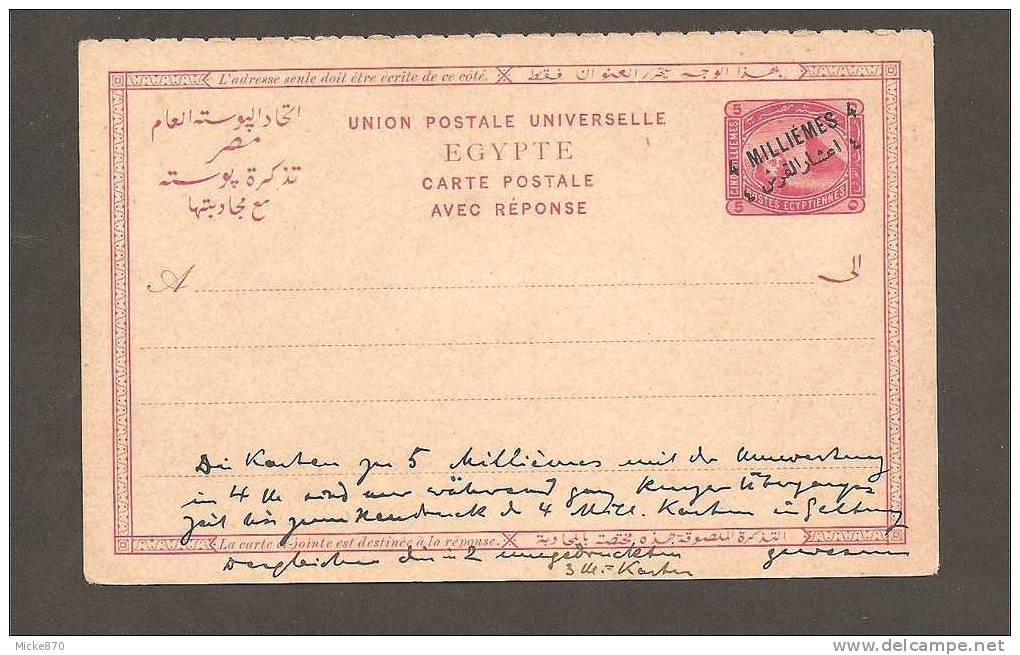 L'adresse seule doit être écrite de ce côté.
بهذا الوجه تحرر العنوان فقط
اتحاد البوسته العام
مصر
تذكرة بوسته
مع مجاوبتها
UNION POSTALE UNIVERSELLE
EGYPTE
CARTE POSTALE
AVEC RÉPONSE
5 5
CINQ MILLIÈMES
4 MILLIÈMES 4
اعشار القرش
5
POSTES EGYPTIENNES
A
الى
Die Karten zu 5 Millièmes mit der Umwertung
in 4 M sind nur während ganz kurzer Übergangs-
zeit bis zum Neudruck d 4 Mill. Karten in Geltung
gewesen
La carte ci-jointe est destinée à la réponse.
التذكرة الملصوقة بهذه مختصة بالمجاوبة
dergleichen die in 2 umgedruckten
3 M.-Karten
Micke870
delcampe.net